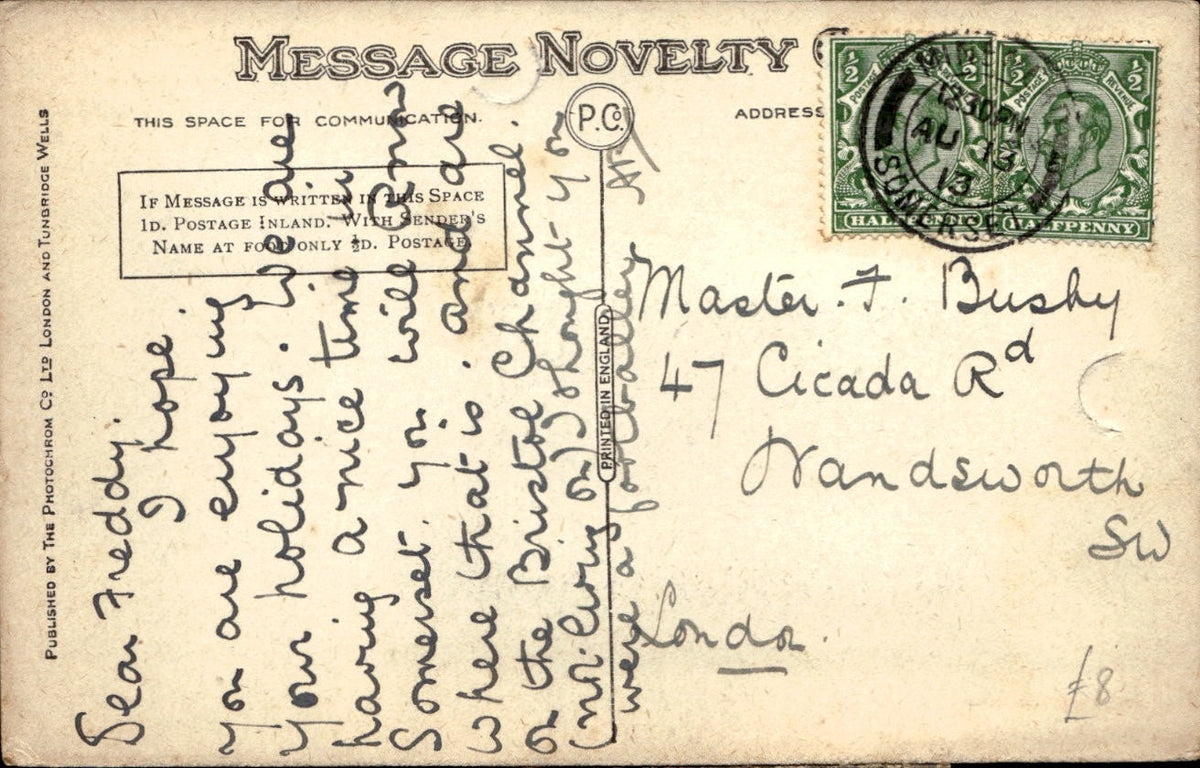 MESSAGE NOVELTY
THIS SPACE FOR COMMUNICATION.
ADDRESS
P.Co.
IF MESSAGE IS WRITTEN IN THIS SPACE
1D. POSTAGE INLAND. WITH SENDER'S
NAME AT FOOT ONLY ½D. POSTAGE.
PUBLISHED BY THE PHOTOCHROM CO LTD LONDON AND TUNBRIDGE WELLS
PRINTED IN ENGLAND
Dear Freddy.
I hope
you are enjoying
your holidays. We are
having a nice time in
Somerset. you will know
where that is. and are
on the Bristol Channel.
(not living on) I thought you
were a footballer
Master. F. Busby
47 Cicada Rd
Wandsworth
SW
London.
£8
½ ½ ½ ½
POSTAGE REVENUE POSTAGE REVENUE
HALFPENNY HALFPENNY
12 30 PM
AU 13
13
SOMERSET